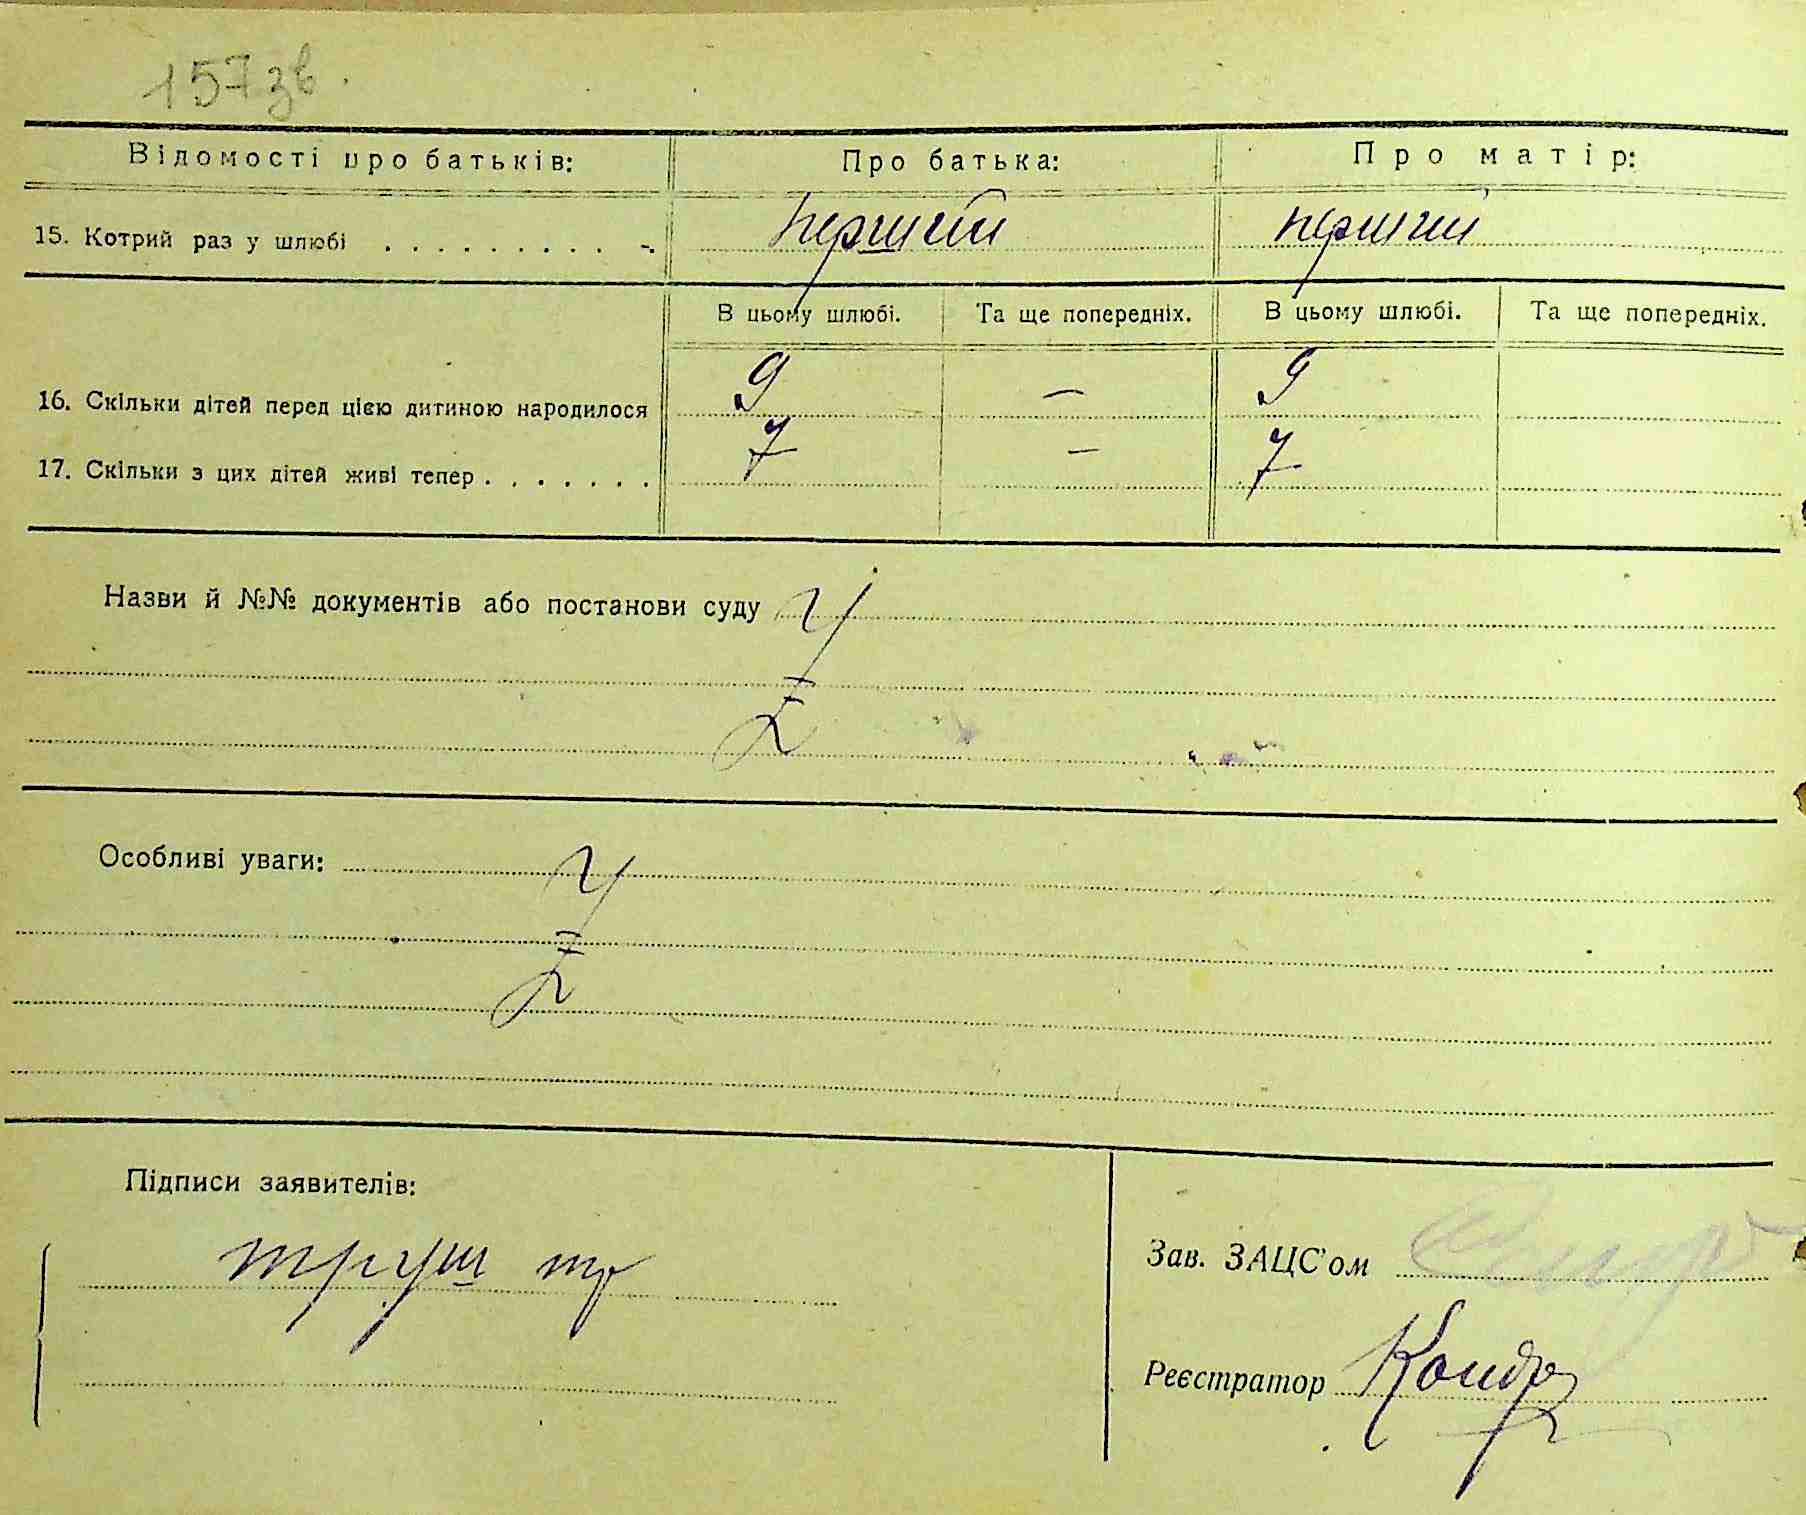 157зв.
Відомості про батьків: Про батька: Про матір:
15. Котрий раз у шлюбі . . . . . . . . . . перший перший
В цьому шлюбі. Та ще попередніх. В цьому шлюбі. Та ще попередніх.
16. Скільки дітей перед цією дитиною народилося 9 — 9
17. Скільки з цих дітей живі тепер . . . . . . . 7 — 7
Назви й №№ документів або постанови суду
Особливі уваги:
Підписи заявителів:
Зав. ЗАЦС'ом
труш
Реєстратор